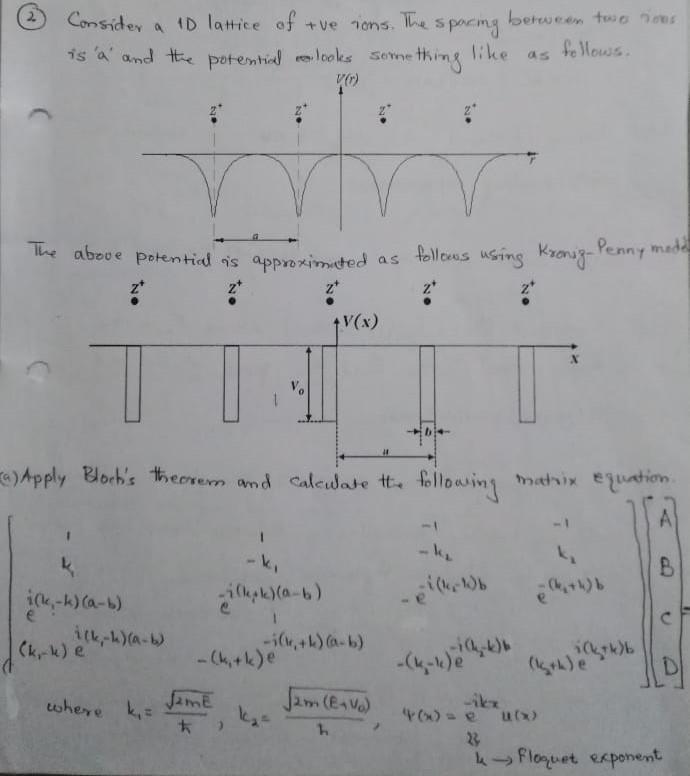 ② Consider a 1D lattice of +ve ions. The spacing between two ions
is 'a' and the potential looks something like as follows.
V(r)
Z⁺ Z⁺ Z⁺ Z⁺
r
a
The above potential is approximated as follows using Kronig-Penny model
Z⁺ Z⁺ Z⁺ Z⁺ Z⁺
V(x)
x
V₀
b
a
(a) Apply Bloch's theorem and calculate the following matrix equation.
1 1 -1 -1 A
k₁ -k₁ -k₂ k₂ B
e^{i(k₁-k)(a-b)} e^{-i(k₁+k)(a-b)} -e^{-i(k₂-k)b} e^{-(k₂+k)b} C
(k₁-k) e^{i(k₁-k)(a-b)} -(k₁+k) e^{-i(k₁+k)(a-b)} -(k₂-k) e^{-i(k₂-k)b} (k₂+k) e^{i(k₂+k)b} D =
where k₁ = √2mE / ħ , k₂ = √2m(E+V₀) / ħ , Ψ(x) = e^{-ikx} u(x)
k → Floquet exponent